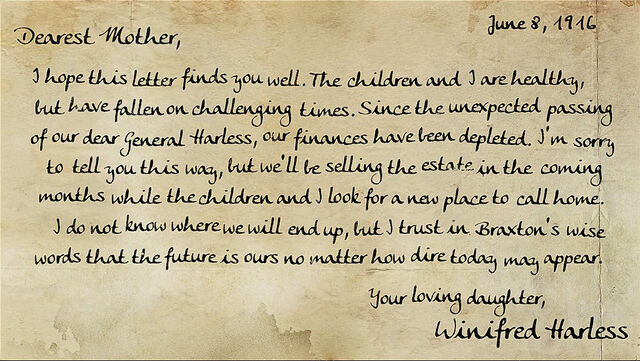 June 8, 1916
Dearest Mother,
I hope this letter finds you well. The children and I are healthy,
but have fallen on challenging times. Since the unexpected passing
of our dear General Harless, our finances have been depleted. I'm sorry
to tell you this way, but we'll be selling the estate in the coming
months while the children and I look for a new place to call home.
I do not know where we will end up, but I trust in Braxton's wise
words that the future is ours no matter how dire today may appear.
Your loving daughter,
Winifred Harless